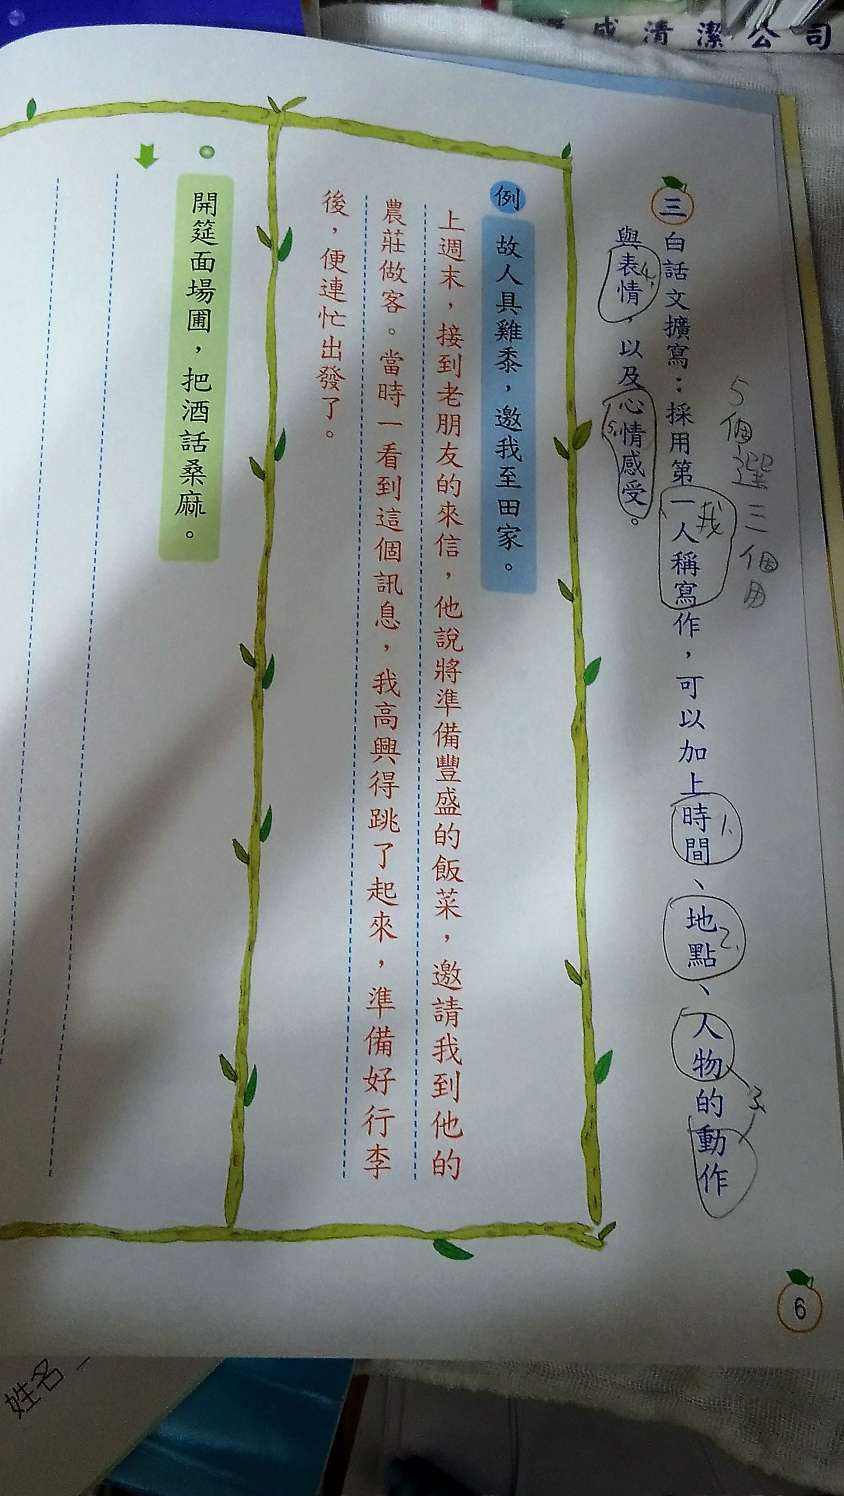 清潔公司
三 白話文擴寫：採用第一人稱寫作，可以加上時間、地點、人物的動作
與表情，以及心情感受。
我
1.
2.
3.
4.
5.
5個選三個用
例 故人具雞黍，邀我至田家。
上週末，接到老朋友的來信，他說將準備豐盛的飯菜，邀請我到他的
農莊做客。當時一看到這個訊息，我高興得跳了起來，準備好行李
後，便連忙出發了。
開筵面場圃，把酒話桑麻。
6
姓名